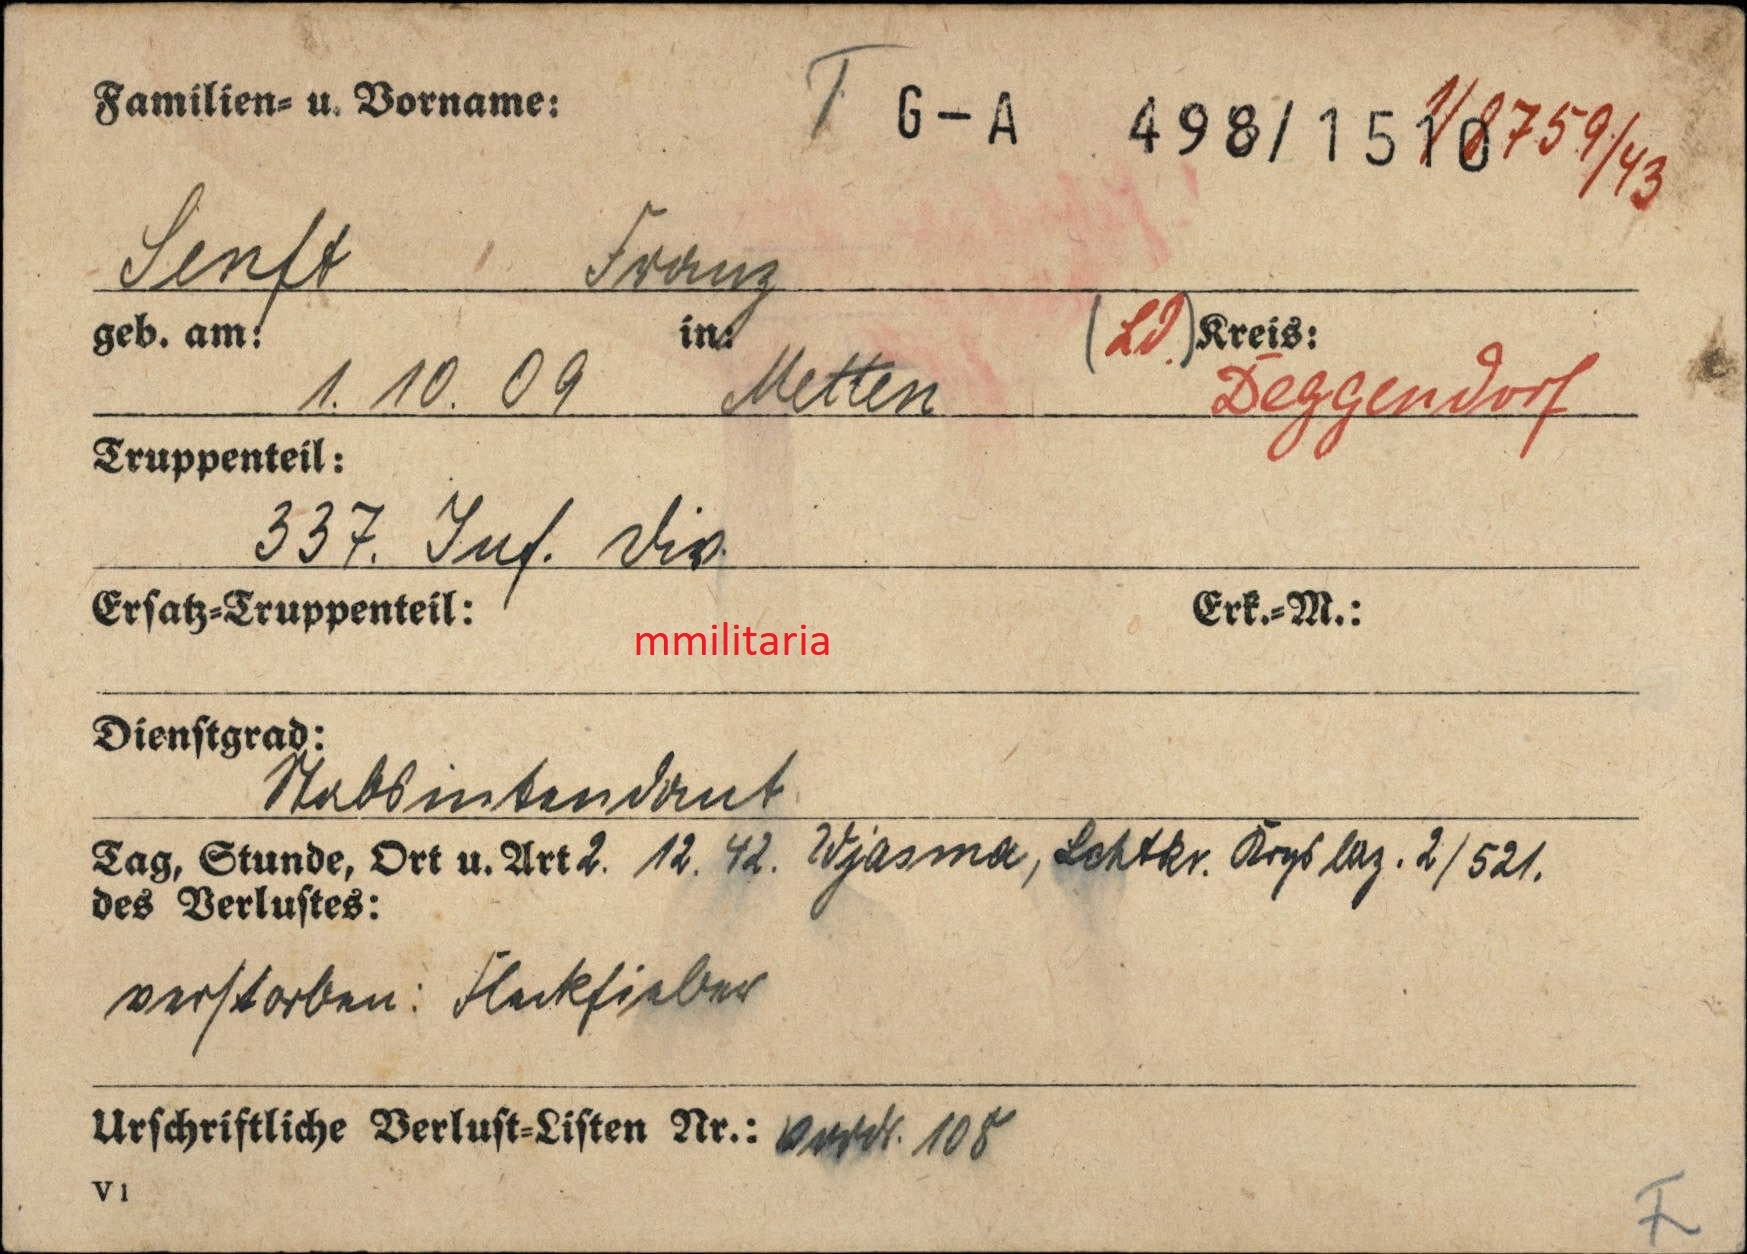 Familien- u. Vorname: T G-A 498/1510 1/8759/43
Senft Franz
geb. am: in: (Ld.) Kreis:
1. 10. 09 Metten Deggendorf
Truppenteil:
337. Inf. Div.
Ersatz-Truppenteil: Erk.-M.:
mmilitaria
Dienstgrad:
Stabsintendant
Tag, Stunde, Ort u. Art 2. 12. 42. Wjasma, Krgslaz. 2/521.
des Verlustes:
verstorben: Fleckfieber
Urschriftliche Verlust-Listen Nr.: 108
V 1